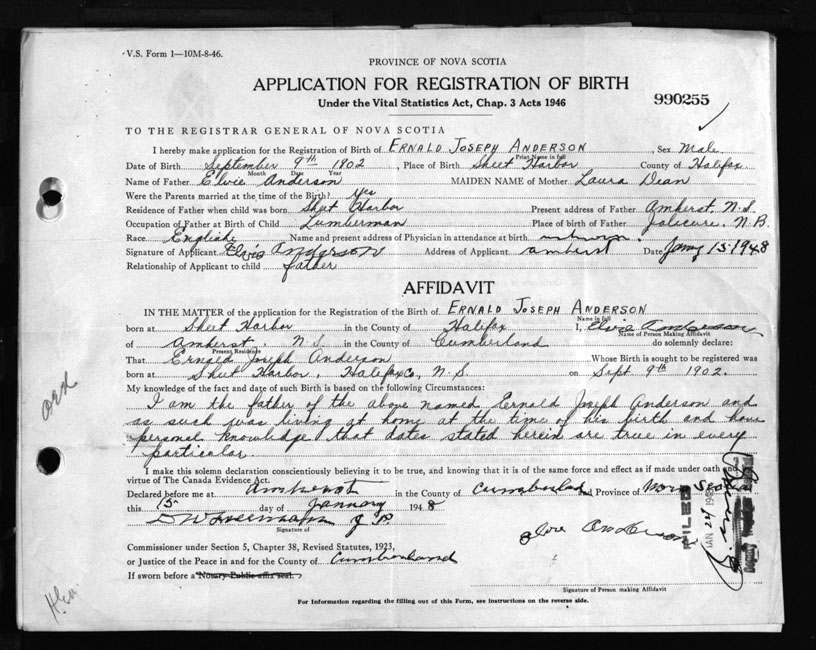 V.S. Form 1—10M-8-46.
PROVINCE OF NOVA SCOTIA
APPLICATION FOR REGISTRATION OF BIRTH
Under the Vital Statistics Act, Chap. 3 Acts 1946
990255
TO THE REGISTRAR GENERAL OF NOVA SCOTIA
I hereby make application for the Registration of Birth of ERNALD JOSEPH ANDERSON, Sex Male
Print Name in full
Date of Birth September 9th 1902, Place of Birth Sheet Harbor County of Halifax
Month Date Year
Name of Father Elvie Anderson MAIDEN NAME of Mother Laura Dean
Were the Parents married at the time of the Birth? Yes
Residence of Father when child was born Sheet Harbor Present address of Father Amherst, N.S.
Occupation of Father at Birth of Child Lumberman Place of birth of Father Jolicure, N.B.
Race English Name and present address of Physician in attendance at birth unknown
Signature of Applicant Elvie Anderson Address of Applicant amherst Date Jany 15 1948
Relationship of Applicant to child father
AFFIDAVIT
IN THE MATTER of the application for the Registration of the Birth of ERNALD JOSEPH ANDERSON
Name in full
born at Sheet Harbor in the County of Halifax I, Elvie Anderson
Name of Person Making Affidavit
of Amherst, N.S. in the County of Cumberland do solemnly declare:
Present Residence
That Ernald Joseph Anderson Whose Birth is sought to be registered was
born at Sheet Harbor, Halifax Co, N.S on Sept 9th 1902.
My knowledge of the fact and date of such Birth is based on the following Circumstances:
I am the father of the above named Ernald Joseph Anderson and
as such was living at home at the time of his birth and have
personal knowledge that dates stated herein are true in every
particular.
I make this solemn declaration conscientiously believing it to be true, and knowing that it is of the same force and effect as if made under oath and
virtue of The Canada Evidence Act.
Declared before me at Amherst in the County of Cumberland and Province of Nova Scotia
this 15 day of January 1948
J P
Signature of
Elvie Anderson
Commissioner under Section 5, Chapter 38, Revised Statutes, 1923,
or Justice of the Peace in and for the County of Cumberland
If sworn before a Notary Public affix seal.
Signature of Person making Affidavit
For Information regarding the filling out of this Form, see instructions on the reverse side.
FILED
JAN 24 194
Deputy